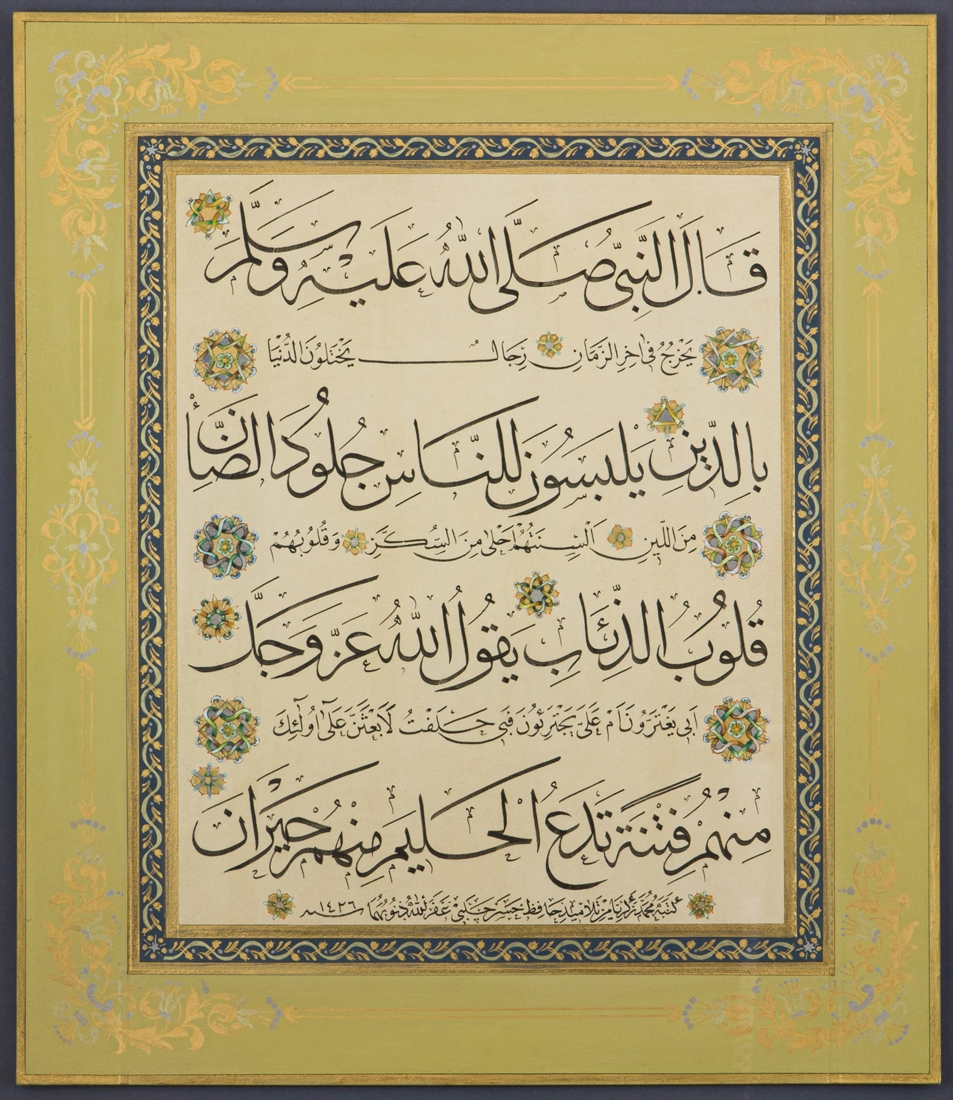 قَالَ النَّبِيُّ صَلَّى اللهُ عَلَيْهِ وَسَلَّمَ
يَخْرُجُ فِي آخِرِ الزَّمَانِ رِجَالٌ يَخْتَلُونَ الدُّنْيَا
بِالدِّينِ يَلْبَسُونَ لِلنَّاسِ جُلُودَ الضَّأْنِ
مِنَ اللِّينِ اَلْسِنَتُهُمْ اَحْلٰى مِنَ السُّكَّرِ وَقُلُوبُهُمْ
قُلُوبُ الذِّئَابِ يَقُولُ اللهُ عَزَّ وَجَلَّ
اَبِي يَغْتَرُّونَ اَمْ عَلَيَّ يَجْتَرِئُونَ فَبِي حَلَفْتُ لَاَبْعَثَنَّ عَلٰى اُولٰئِكَ
مِنْهُمْ فِتْنَةً تَدَعُ الْحَلِيمَ مِنْهُمْ حَيْرَانَ
كتبه محمد زكريا من تلاميذ حافظ حسن چلبي غفر الله ذنوبهما ١٤٢٦